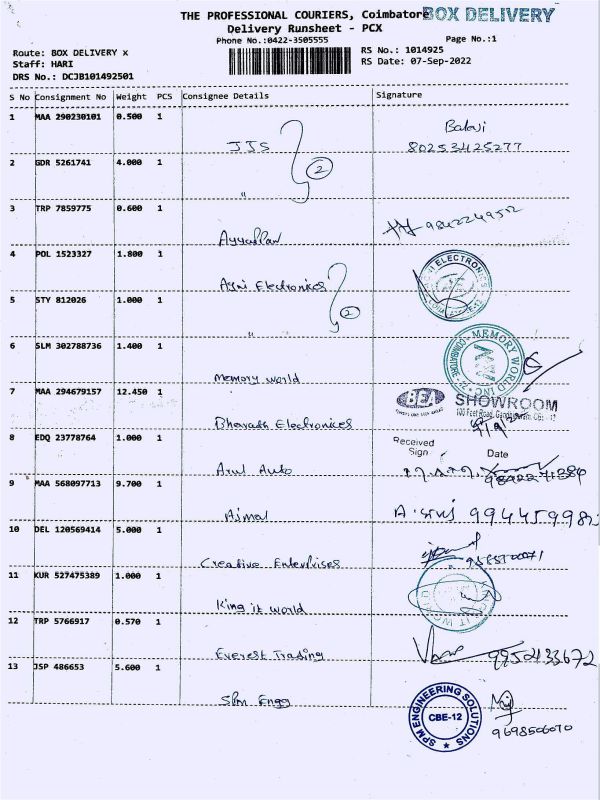 THE PROFESSIONAL COURIERS, Coimbatore
BOX DELIVERY
Delivery Runsheet - PCX
Phone No.:0422-3505555
Page No.:1
Route: BOX DELIVERY x
RS No.: 1014925
Staff: HARI
RS Date: 07-Sep-2022
DRS No.: DCJB101492501
S No Consignment No Weight PCS Consignee Details Signature
1 MAA 290230101 0.500 1
JJS
Balaji
80253425277
2 GDR 5261741 4.000 1
2
"
3 TRP 7859775 0.600 1
Ayyappan
9842249512
4 POL 1523327 1.800 1
Agni Electronics
ELECTRONICS
5 STY 812026 1.000 1
2
"
6 SLM 302788736 1.400 1
Memory world
MEMORY WORLD INC
COIMBATORE - 12
7 MAA 294679157 12.450 1
Bharath Electronics
BEA
SHOWROOM
100 Feet Road, Gandhipuram, CBE - 12
8 EDQ 23778764 1.000 1
Arul Auto
Received
Sign
Date
9 MAA 568097713 9.700 1
Ajmal
10 DEL 120569414 5.000 1
Creative Enterprises
11 KUR 527475389 1.000 1
King it world
12 TRP 5766917 0.570 1
Everest Trading
9952133672
13 JSP 486653 5.600 1
SPM Engg
SPM ENGINEERING SOLUTIONS
CBE-12
9698506070